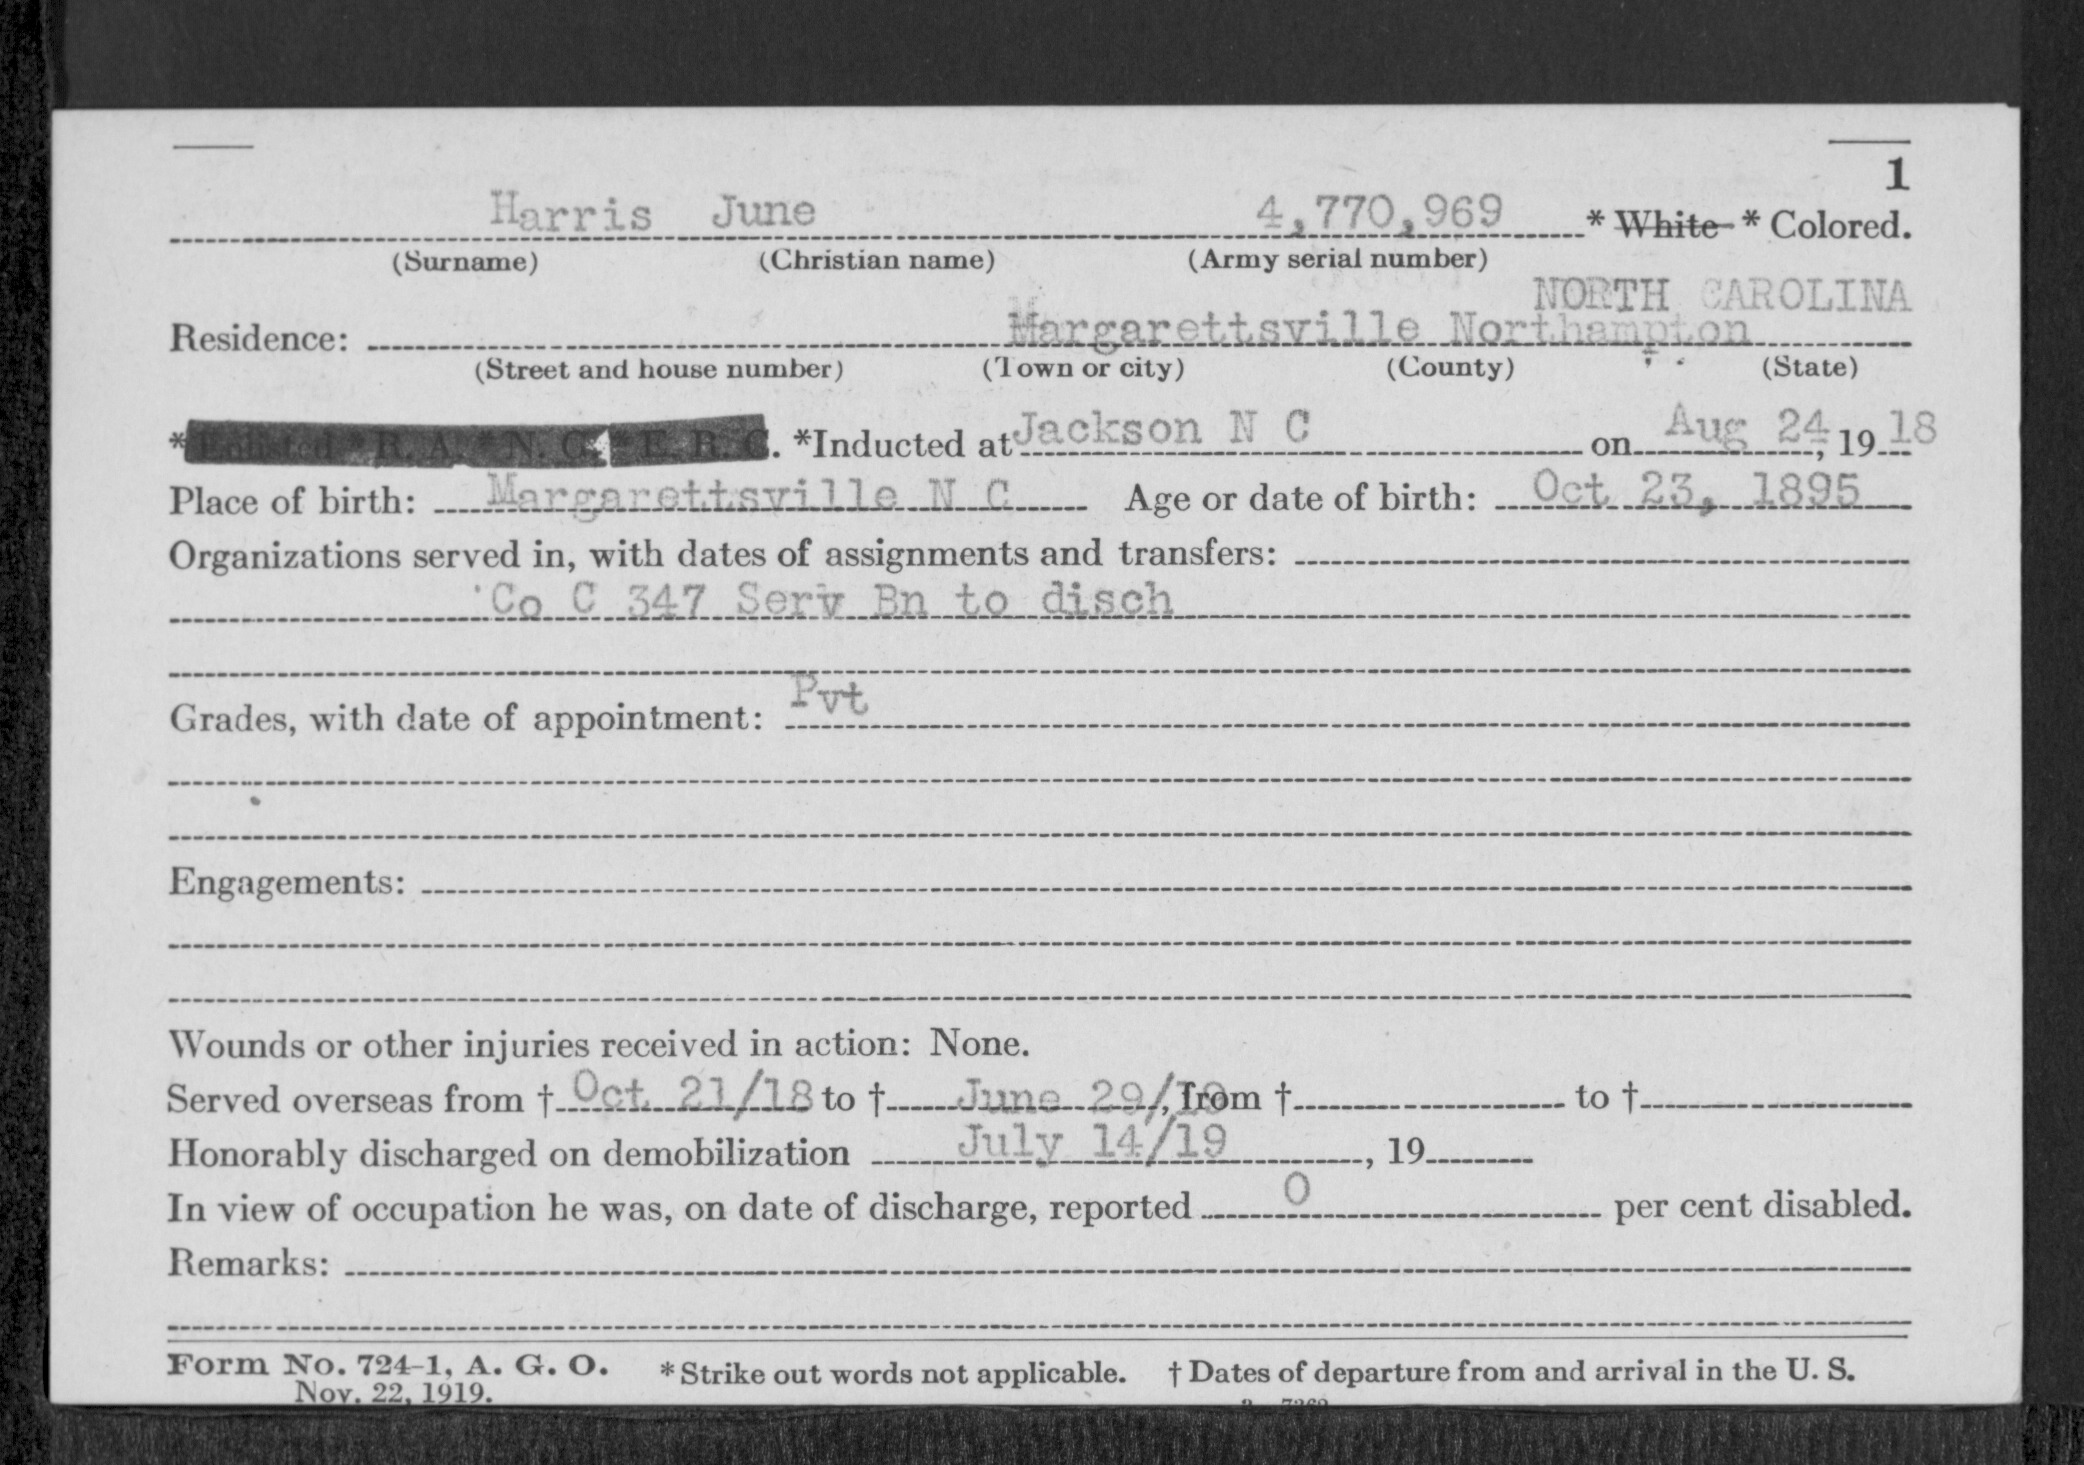 1
Harris June 4,770,969 * White * Colored.
(Surname) (Christian name) (Army serial number)
NORTH CAROLINA
Residence: Margarettsville Northampton
(Street and house number) (Town or city) (County) (State)
* Enlisted * R. A. * N. G. * E. R. C. *Inducted at Jackson N C on Aug 24, 19 18
Place of birth: Margarettsville N C Age or date of birth: Oct 23, 1895
Organizations served in, with dates of assignments and transfers:
Co C 347 Serv Bn to disch
Grades, with date of appointment: Pvt
Engagements:
Wounds or other injuries received in action: None.
Served overseas from † Oct 21/18 to † June 29/19, from † to †
Honorably discharged on demobilization July 14/19, 19
In view of occupation he was, on date of discharge, reported 0 per cent disabled.
Remarks:
Form No. 724-1, A. G. O. * Strike out words not applicable. † Dates of departure from and arrival in the U. S.
Nov. 22, 1919.